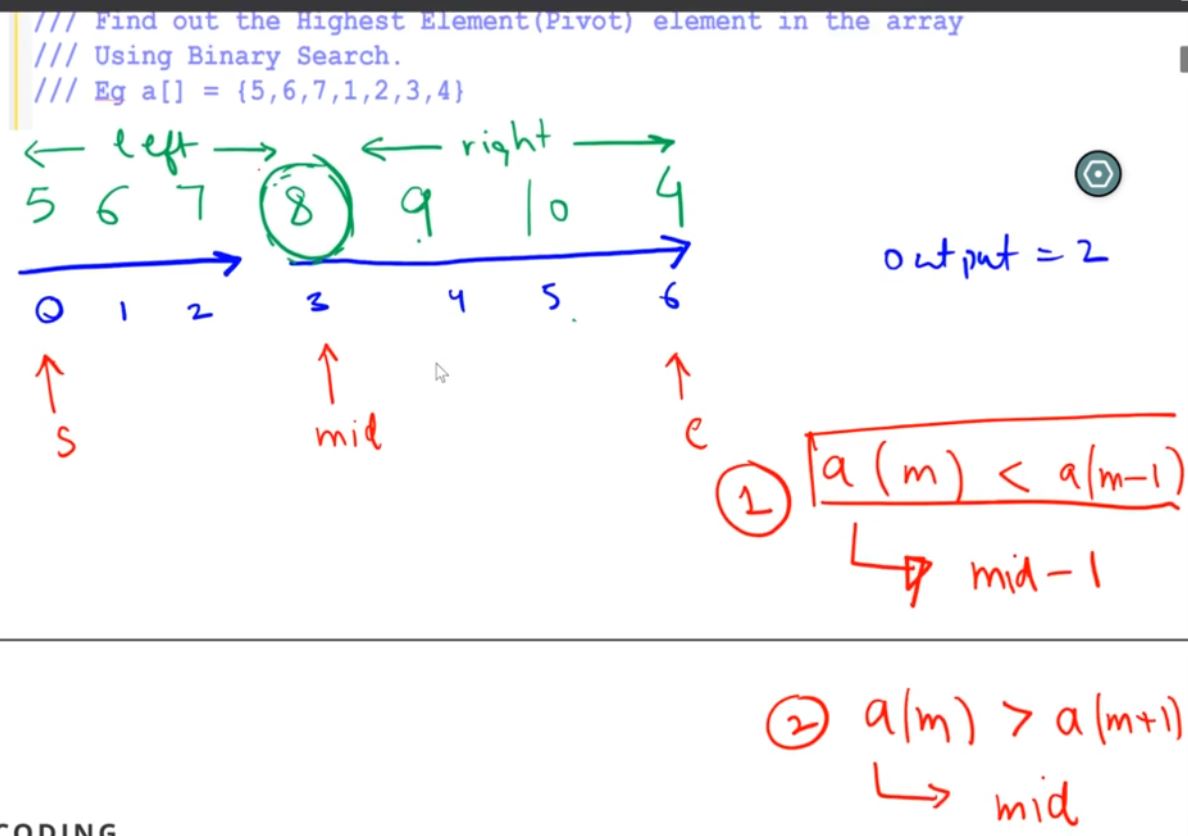 /// Find out the Highest Element(Pivot) element in the array
/// Using Binary Search.
/// Eg a[] = {5,6,7,1,2,3,4}
left right
5 6 7 8 9 10 4
output = 2
0 1 2 3 4 5 6
s mid e
1 a(m) < a(m-1)
mid - 1
2 a(m) > a(m+1)
mid
CODING